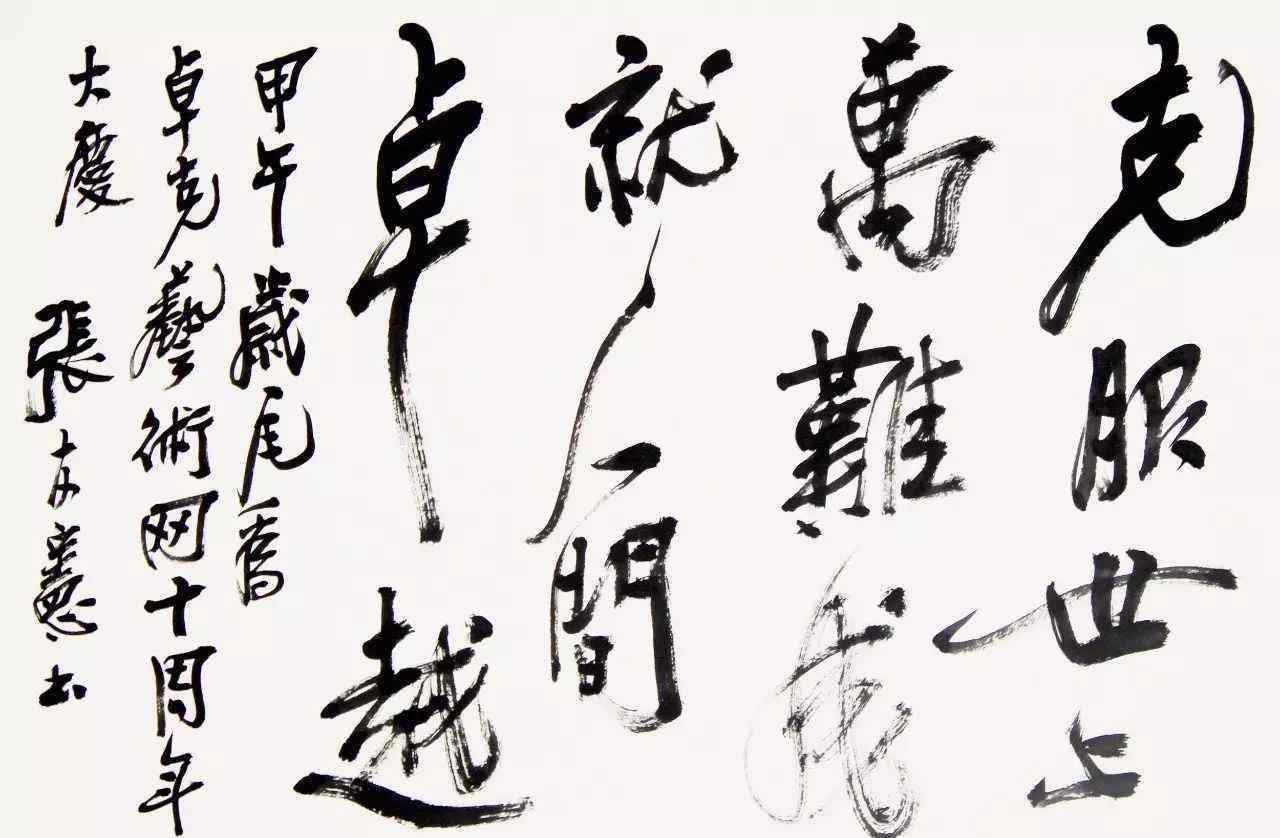 克服世上
萬難成
就人間
卓越
甲午歲尾
卓克藝術网十周年
大慶
張友憲书